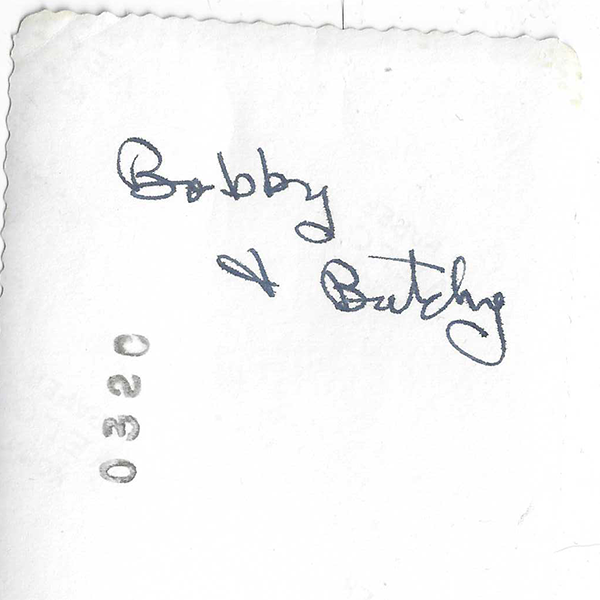 Bobby
& Butchy
0320